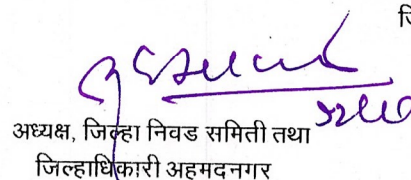 जि
अध्यक्ष, जिल्हा निवड समिती तथा
जिल्हाधिकारी अहमदनगर